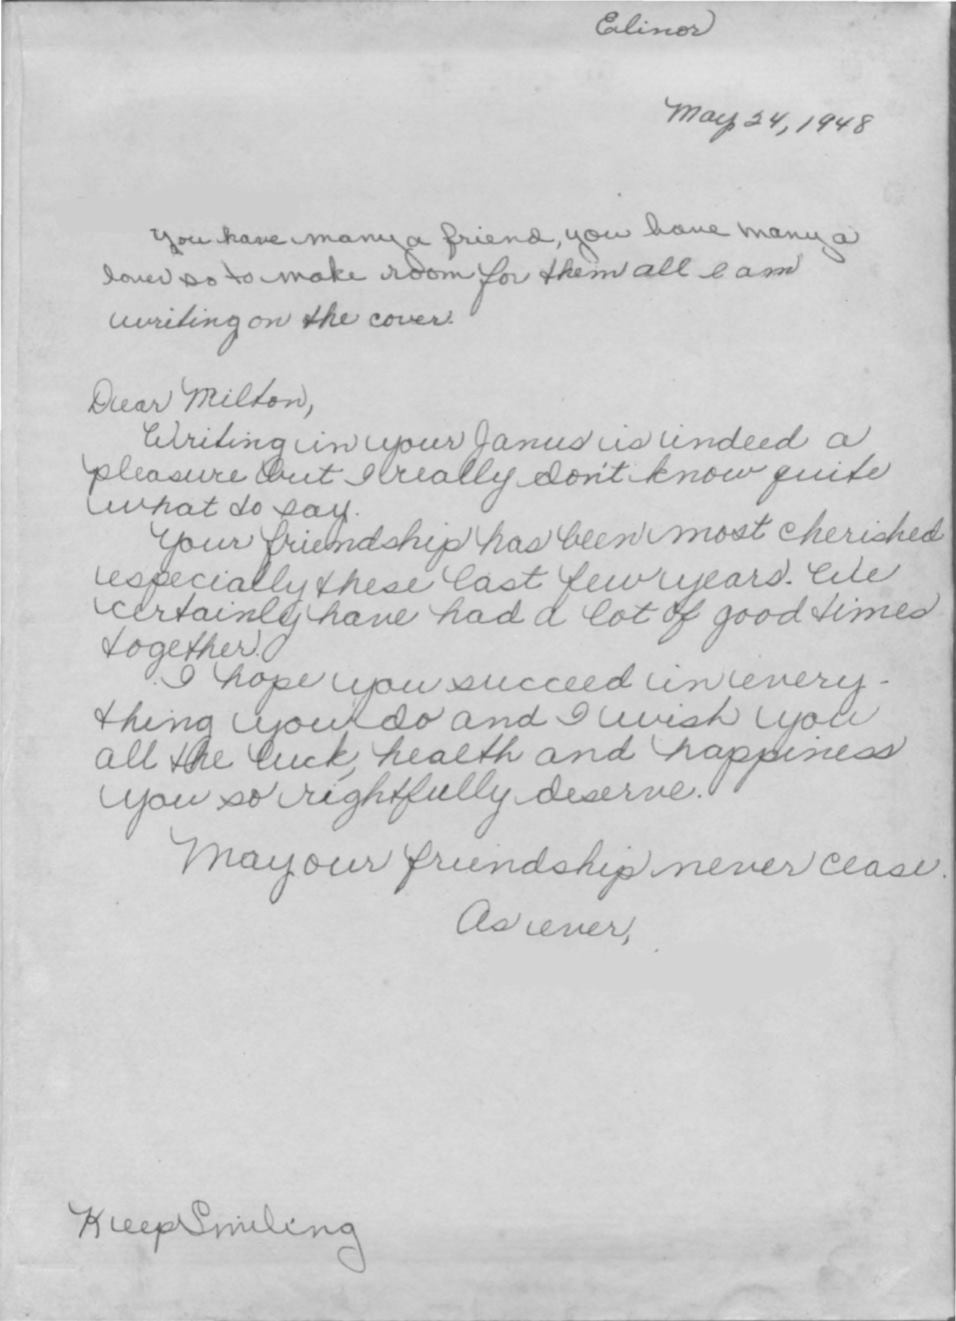 Elinor
May 24, 1948
You have many a friend, you have many a
lover so to make room for them all I am
writing on the cover.
Dear Milton,
Writing in your Janus is indeed a
pleasure but I really don't know quite
what to say.
Your friendship has been most cherished
especially these last few years. We
certainly have had a lot of good times
together.
I hope you succeed in every-
thing you do and I wish you
all the luck, health and happiness
you so rightfully deserve.
May our friendship never cease.
As ever,
Keep Smiling